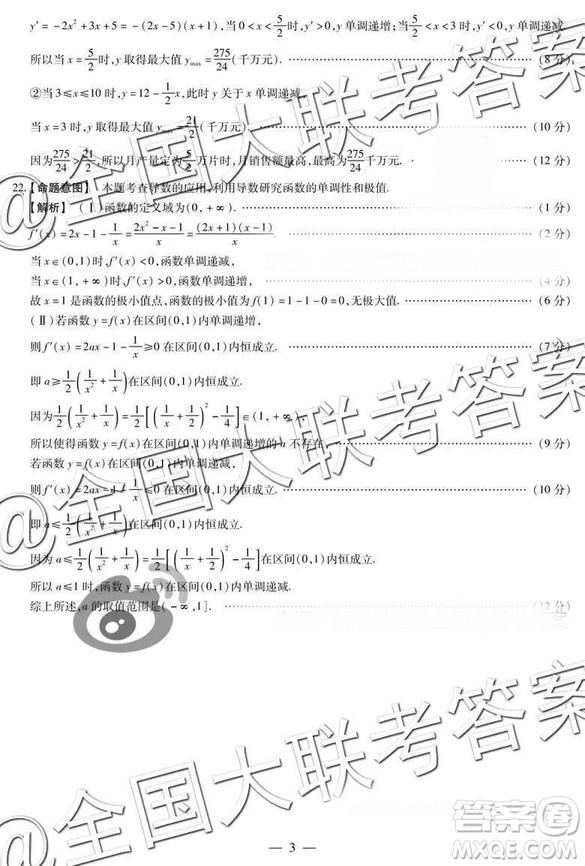 y′ = −2x² + 3x + 5 = −(2x−5)(x+1), 当 0 < x < 5/2 时, y′ > 0, y 单调递增; 当 5/2 < x < 3 时, y′ < 0, y 单调递减.
所以当 x = 5/2 时, y 取得最大值 y_max = 275/24 (千万元). (8 分)
②当 3 ≤ x ≤ 10 时, y = 12 − 1/2 x, 此时 y 关于 x 单调递减
当 x = 3 时, y 取得最大值 y_max = 21/2 (千万元). (10 分)
因为 275/24 > 21/2, 所以月产量定为 5/2 万片时, 月销售额最高, 最高为 275/24 千万元. (12 分)
22. 【命题意图】 本题考查导数的应用, 利用导数研究函数的单调性和极值.
【解析】 (Ⅰ)函数的定义域为(0, +∞). (1 分)
f′(x) = 2x − 1 − 1/x = (2x² − x − 1)/x = (2x+1)(x−1)/x. (2 分)
当 x∈(0,1)时, f′(x) < 0, 函数单调递减,
当 x∈(1, +∞)时, f′(x) > 0, 函数单调递增, (4 分)
故 x = 1 是函数的极小值点, 函数的极小值为 f(1) = 1 − 1 − 0 = 0, 无极大值. (6 分)
(Ⅱ)若函数 y = f(x)在区间(0,1)内单调递增,
则 f′(x) = 2ax − 1 − 1/x ≥ 0 在区间(0,1)内恒成立. (7 分)
即 a ≥ 1/2 (1/x² + 1/x) 在区间(0,1)内恒成立.
因为 1/2 (1/x² + 1/x) = 1/2 [(1/x + 1/2)² − 1/4] ∈ (1, +∞),
所以使得函数 y = f(x)在区间(0,1)内单调递增的 a 不存在. (9 分)
若函数 y = f(x)在区间(0,1)内单调递减,
则 f′(x) = 2ax − 1 − 1/x ≤ 0 在区间(0,1)内恒成立. (10 分)
即 a ≤ 1/2 (1/x² + 1/x) 在区间(0,1)内恒成立.
因为 a ≤ 1/2 (1/x² + 1/x) = 1/2 [(1/x + 1/2)² − 1/4] 在区间(0,1)内恒成立.
所以 a ≤ 1 时, 函数 y = f(x)在区间(0,1)内单调递减.
综上所述, a 的取值范围是(−∞, 1]. (12 分)
@全国大联考答案
@全国大联考答案
@全国大联考答案
答案圈
MXQE.COM
— 3 —